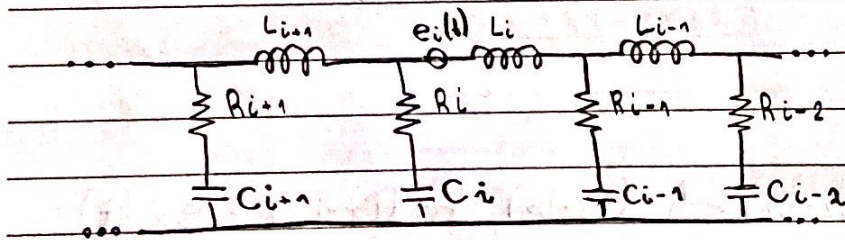 Li+1 ei(t) Li Li-1
Ri+1 Ri Ri-1 Ri-2
Ci+1 Ci Ci-1 Ci-2